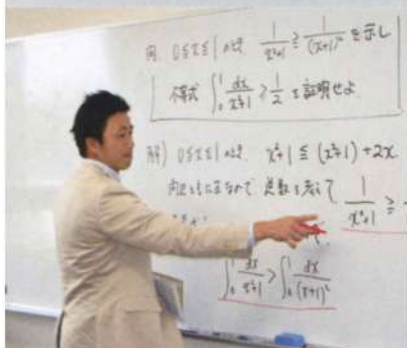 問. 0≦x≦1 のとき 1/(x²+1) ≧ 1/(x+1)² を示し
不等式 ∫₀¹ dx/(x²+1) > 1/2 を証明せよ.
解) 0≦x≦1 のとき. x²+1 ≦ (x²+1)+2x
両辺ともに正なので 逆数を考えて 1/(x²+1) ≧
∫₀¹ dx/(x²+1) > ∫₀¹ dx/(x+1)²